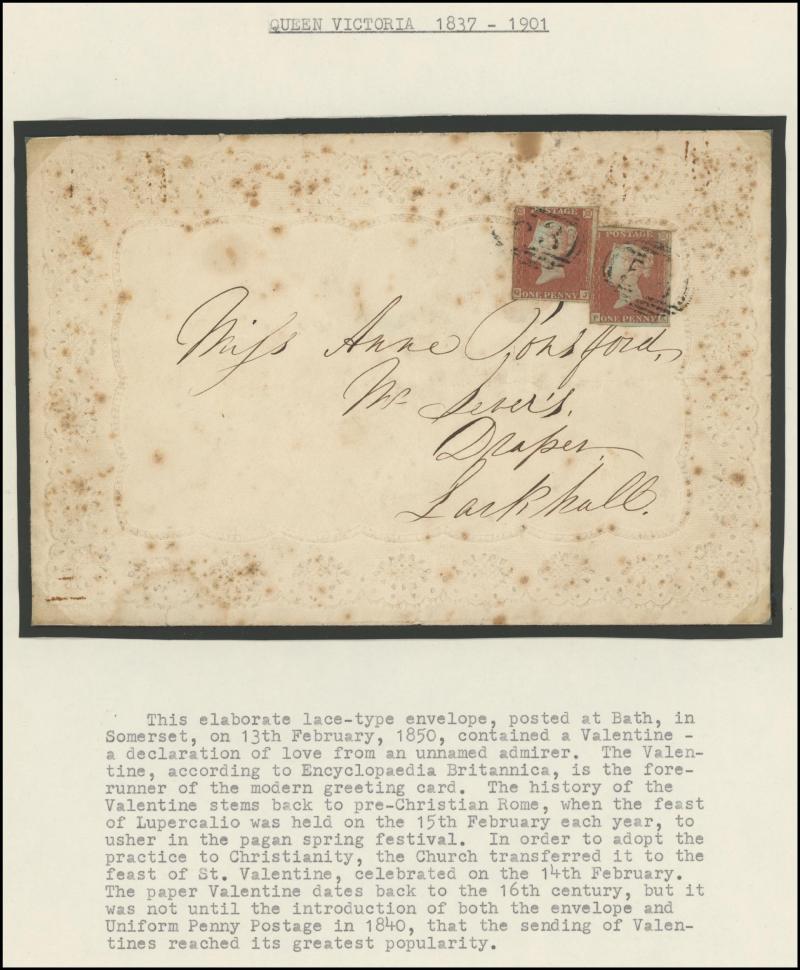 QUEEN VICTORIA 1837 - 1901
POSTAGE
ONE PENNY
POSTAGE
ONE PENNY
Miss Anne Ponsford,
Mr Sever's.
Draper.
Larkhall.
This elaborate lace-type envelope, posted at Bath, in
Somerset, on 13th February, 1850, contained a Valentine -
a declaration of love from an unnamed admirer. The Valen-
tine, according to Encyclopaedia Britannica, is the fore-
runner of the modern greeting card. The history of the
Valentine stems back to pre-Christian Rome, when the feast
of Lupercalio was held on the 15th February each year, to
usher in the pagan spring festival. In order to adopt the
practice to Christianity, the Church transferred it to the
feast of St. Valentine, celebrated on the 14th February.
The paper Valentine dates back to the 16th century, but it
was not until the introduction of both the envelope and
Uniform Penny Postage in 1840, that the sending of Valen-
tines reached its greatest popularity.